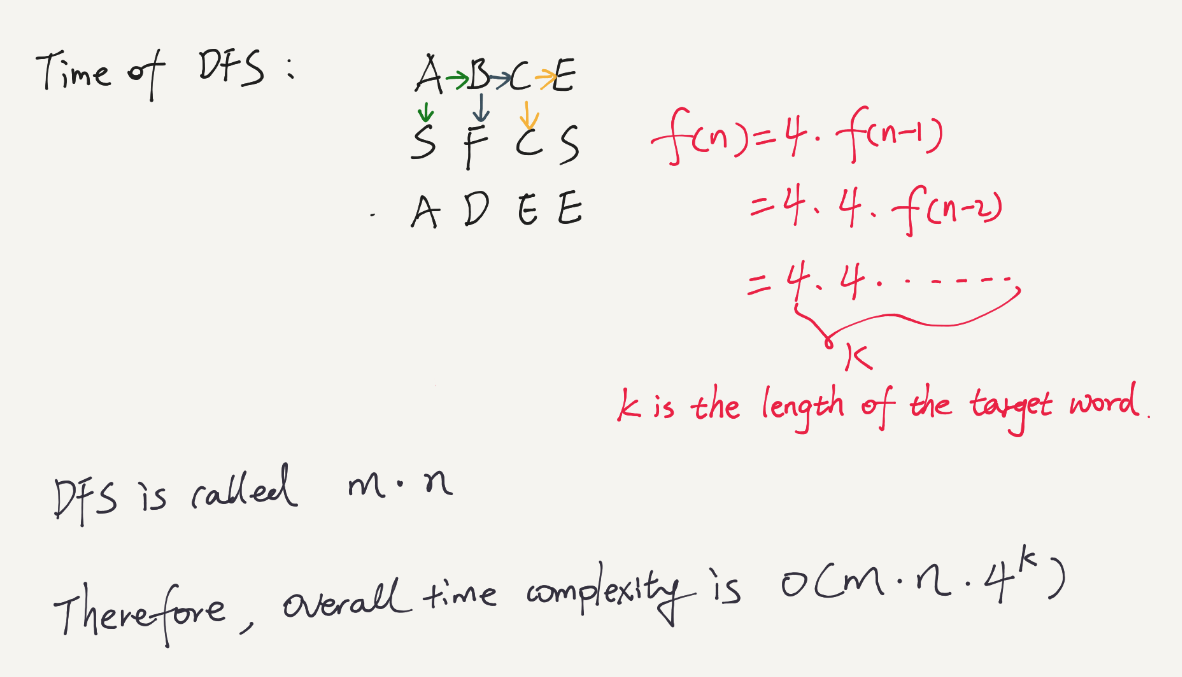 Time of DFS :
A→B→C→E
↓ ↓ ↓
S F C S
A D E E
f(n)=4·f(n-1)
=4·4·f(n-2)
=4·4·······
K
k is the length of the target word.
DFS is called m·n
Therefore, overall time complexity is O(m·n·4^k)